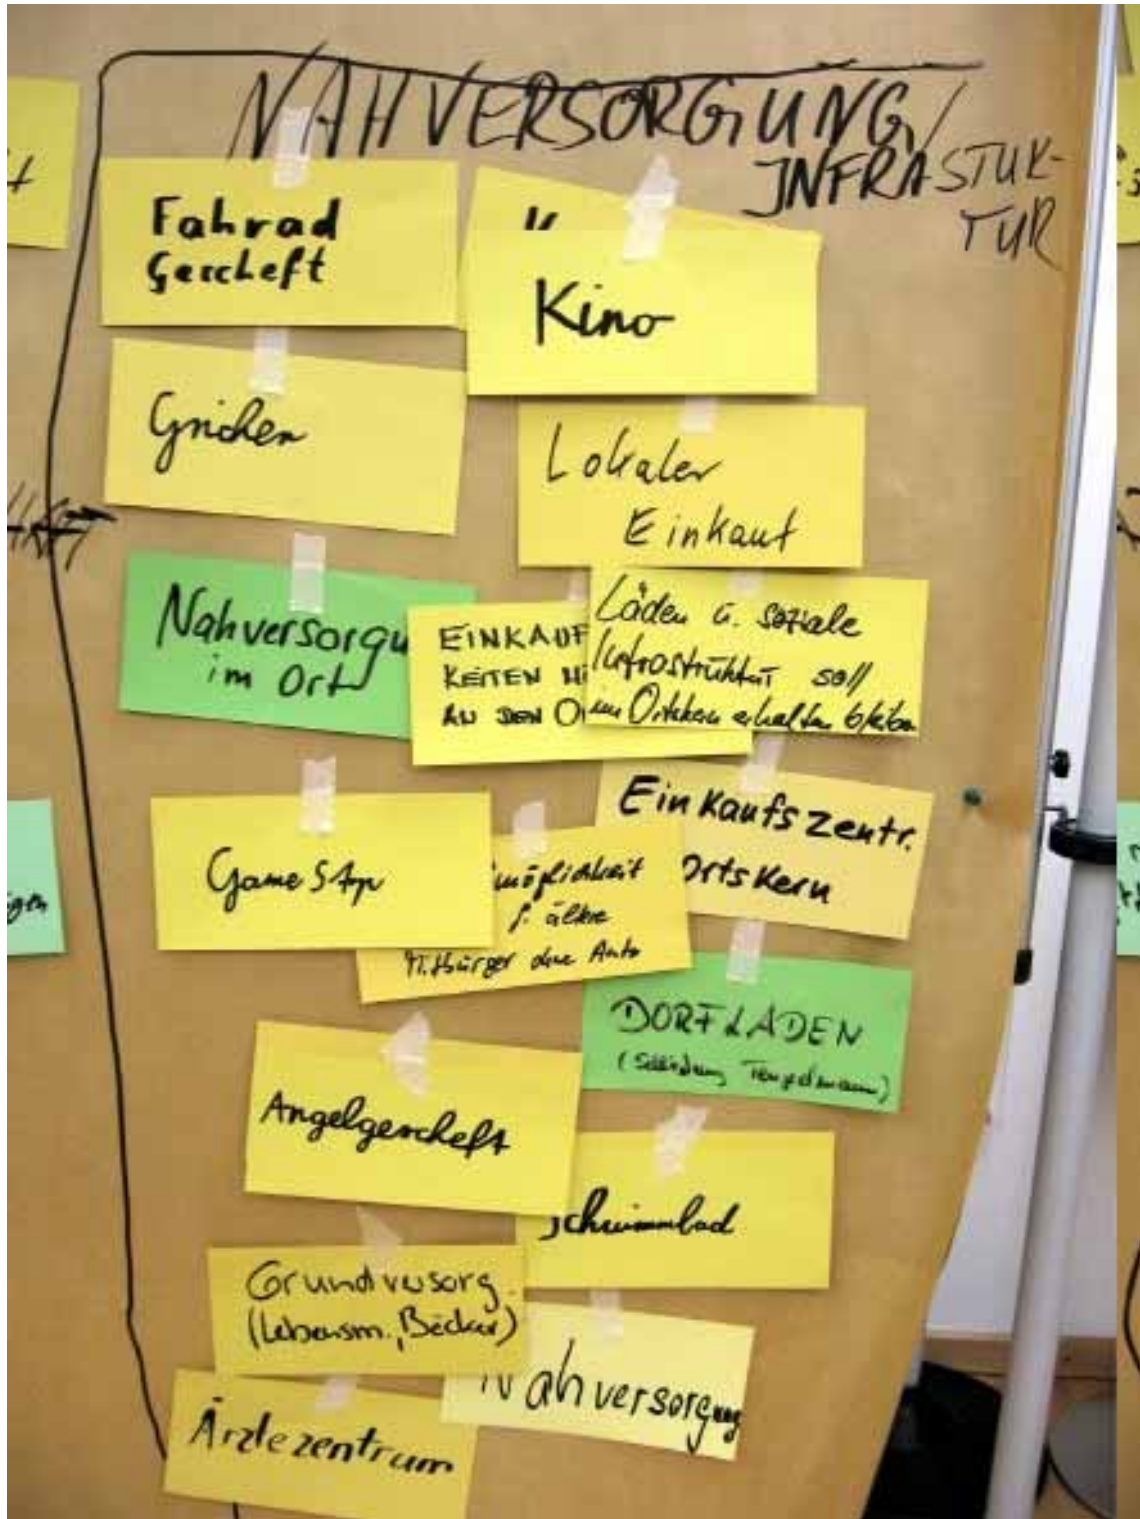 NAHVERSORGUNG/
INFRASTUK-
TUR
Fahrad
Gescheft
Kino
Grichen
Lokaler
Einkauf
Nahversorgu
im Ort
EINKAUF
KEITEN
AN DEN O
Läden u. soziale
Infrastruktur soll
im Ortskern erhalten bleiben
Einkaufszentr.
Ortskern
GameStop
möglichkeit
f. ältre
Mitbürger ohne Auto
DORFLADEN
(
Angelgescheft
Schwimmbad
Grundversorg.
(Lebensm., Bäcker)
Nahversorgung
Ärztezentrum